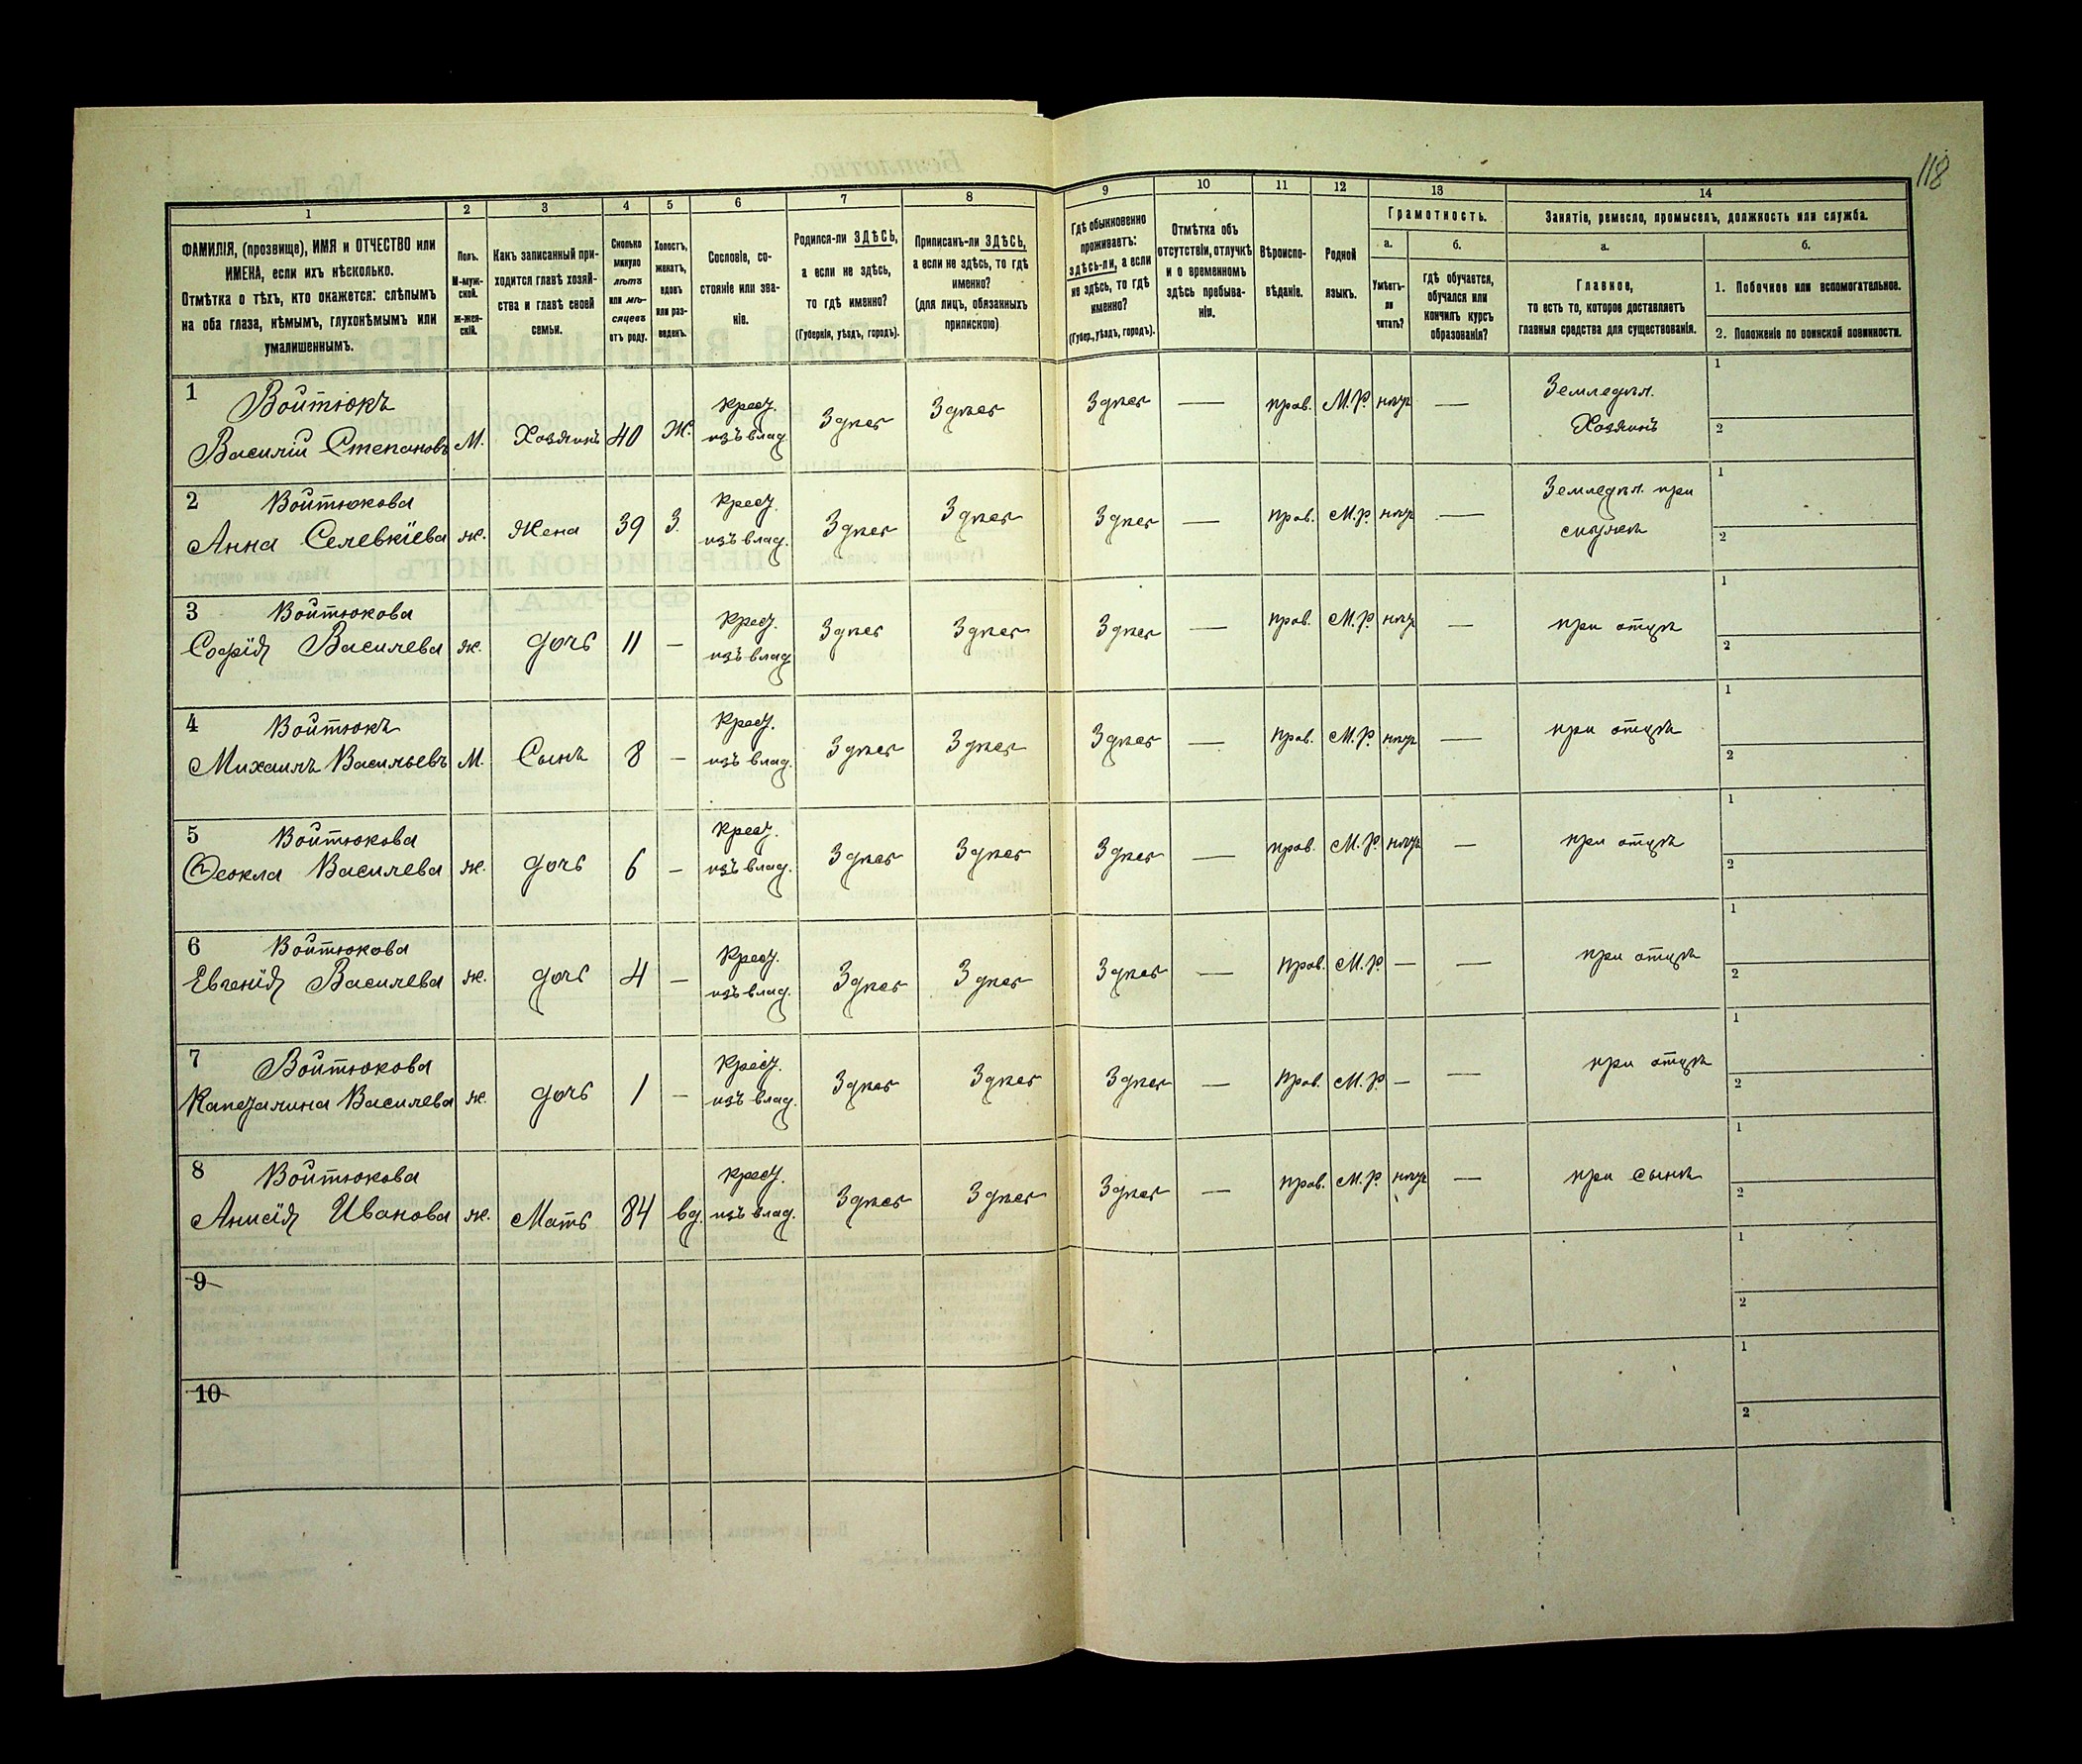 118
1 2 3 4 5 6 7 8 9 10 11 12 13 14
ФАМИЛІЯ, (прозвище), ИМЯ и ОТЧЕСТВО или
ИМЕНА, если ихъ нѣсколько.
Отмѣтка о тѣхъ, кто окажется: слѣпымъ
на оба глаза, нѣмымъ, глухонѣмымъ или
умалишеннымъ.
Полъ.
М-муж-
ской.
Ж-жен-
скій.
Какъ записанный при-
ходится главѣ хозяй-
ства и главѣ своей
семьи.
Сколько
минуло
лѣтъ
или мѣ-
сяцевъ
отъ роду.
Холостъ,
женатъ,
вдовъ
или раз-
веденъ.
Сословіе, со-
стояніе или зва-
ніе.
Родился-ли ЗДѢСЬ,
а если не здѣсь,
то гдѣ именно?
(Губернія, уѣздъ, городъ).
Приписанъ-ли ЗДѢСЬ,
а если не здѣсь, то гдѣ
именно?
(для лицъ, обязанныхъ
припискою)
Гдѣ обыкновенно
проживаетъ:
здѣсь-ли, а если
не здѣсь, то гдѣ
именно?
(Губер., уѣздъ, городъ).
Отмѣтка объ
отсутствіи, отлучкѣ
и о временномъ
здѣсь пребыва-
ніи.
Вѣроиспо-
вѣданіе.
Родной
языкъ.
Грамотность.
а.
Умѣетъ-
ли
читать?
б.
гдѣ обучается,
обучался или
кончилъ курсъ
образованія?
Занятіе, ремесло, промыселъ, должность или служба.
а.
Главное,
то есть то, которое доставляетъ
главныя средства для существованія.
б.
1. Побочное или вспомогательное.
2. Положеніе по воинской повинности.
1 Войтюкъ
Василій Степановъ М. Хозяинъ 40 Ж. Крест. изъ влад. Здѣсь Здѣсь Здѣсь — прав. М.Р. нѣтъ — Земледѣл. Хозяинъ
1
2
2 Войтюкова
Анна Селевкіева ж. Жена 39 З. Крест. изъ влад. Здѣсь Здѣсь Здѣсь — прав. М.Р. нѣтъ — Земледѣл. при
1
2
3 Войтюкова
Софія Василева ж. дочь 11 — Крест. изъ влад. Здѣсь Здѣсь Здѣсь — прав. М.Р. нѣтъ — при отцѣ
1
2
4 Войтюкъ
Михаилъ Васильевъ М. Сынъ 8 — Крест. изъ влад. Здѣсь Здѣсь Здѣсь — прав. М.Р. нѣтъ — при отцѣ
1
2
5 Войтюкова
Ѳеокла Василева ж. дочь 6 — Крест. изъ влад. Здѣсь Здѣсь Здѣсь — прав. М.Р. нѣтъ — при отцѣ
1
2
6 Войтюкова
Евгенія Василева ж. дочь 4 — Крест. изъ влад. Здѣсь Здѣсь Здѣсь — прав. М.Р. — — при отцѣ
1
2
7 Войтюкова
Капеталина Василева ж. дочь 1 — Крест. изъ влад. Здѣсь Здѣсь Здѣсь — прав. М.Р. — — при отцѣ
1
2
8 Войтюкова
Анисія Иванова ж. Мать 84 вд. Крест. изъ влад. Здѣсь Здѣсь Здѣсь — прав. М.Р. нѣтъ — при сынѣ
1
2
9
1
2
10
1
2